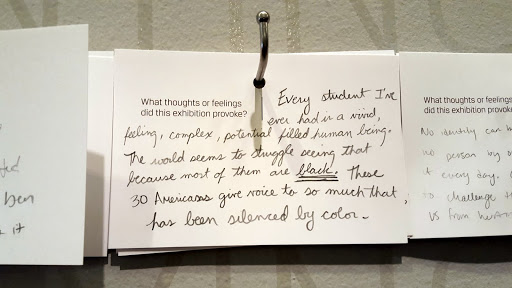 What thoughts or feelings
did this exhibition provoke?
Every student I've
ever had is a vivid,
feeling, complex, potential filled human being.
The world seems to struggle seeing that
because most of them are black. These
30 Americans give voice to so much that
has been silenced by color.
What thoughts or feelings
did this exhibition provoke?
No identity can
no person by
it every day.
to challenge
us from